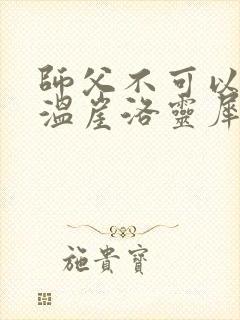 師父不可以
溫崖洛靈犀
施貴寶